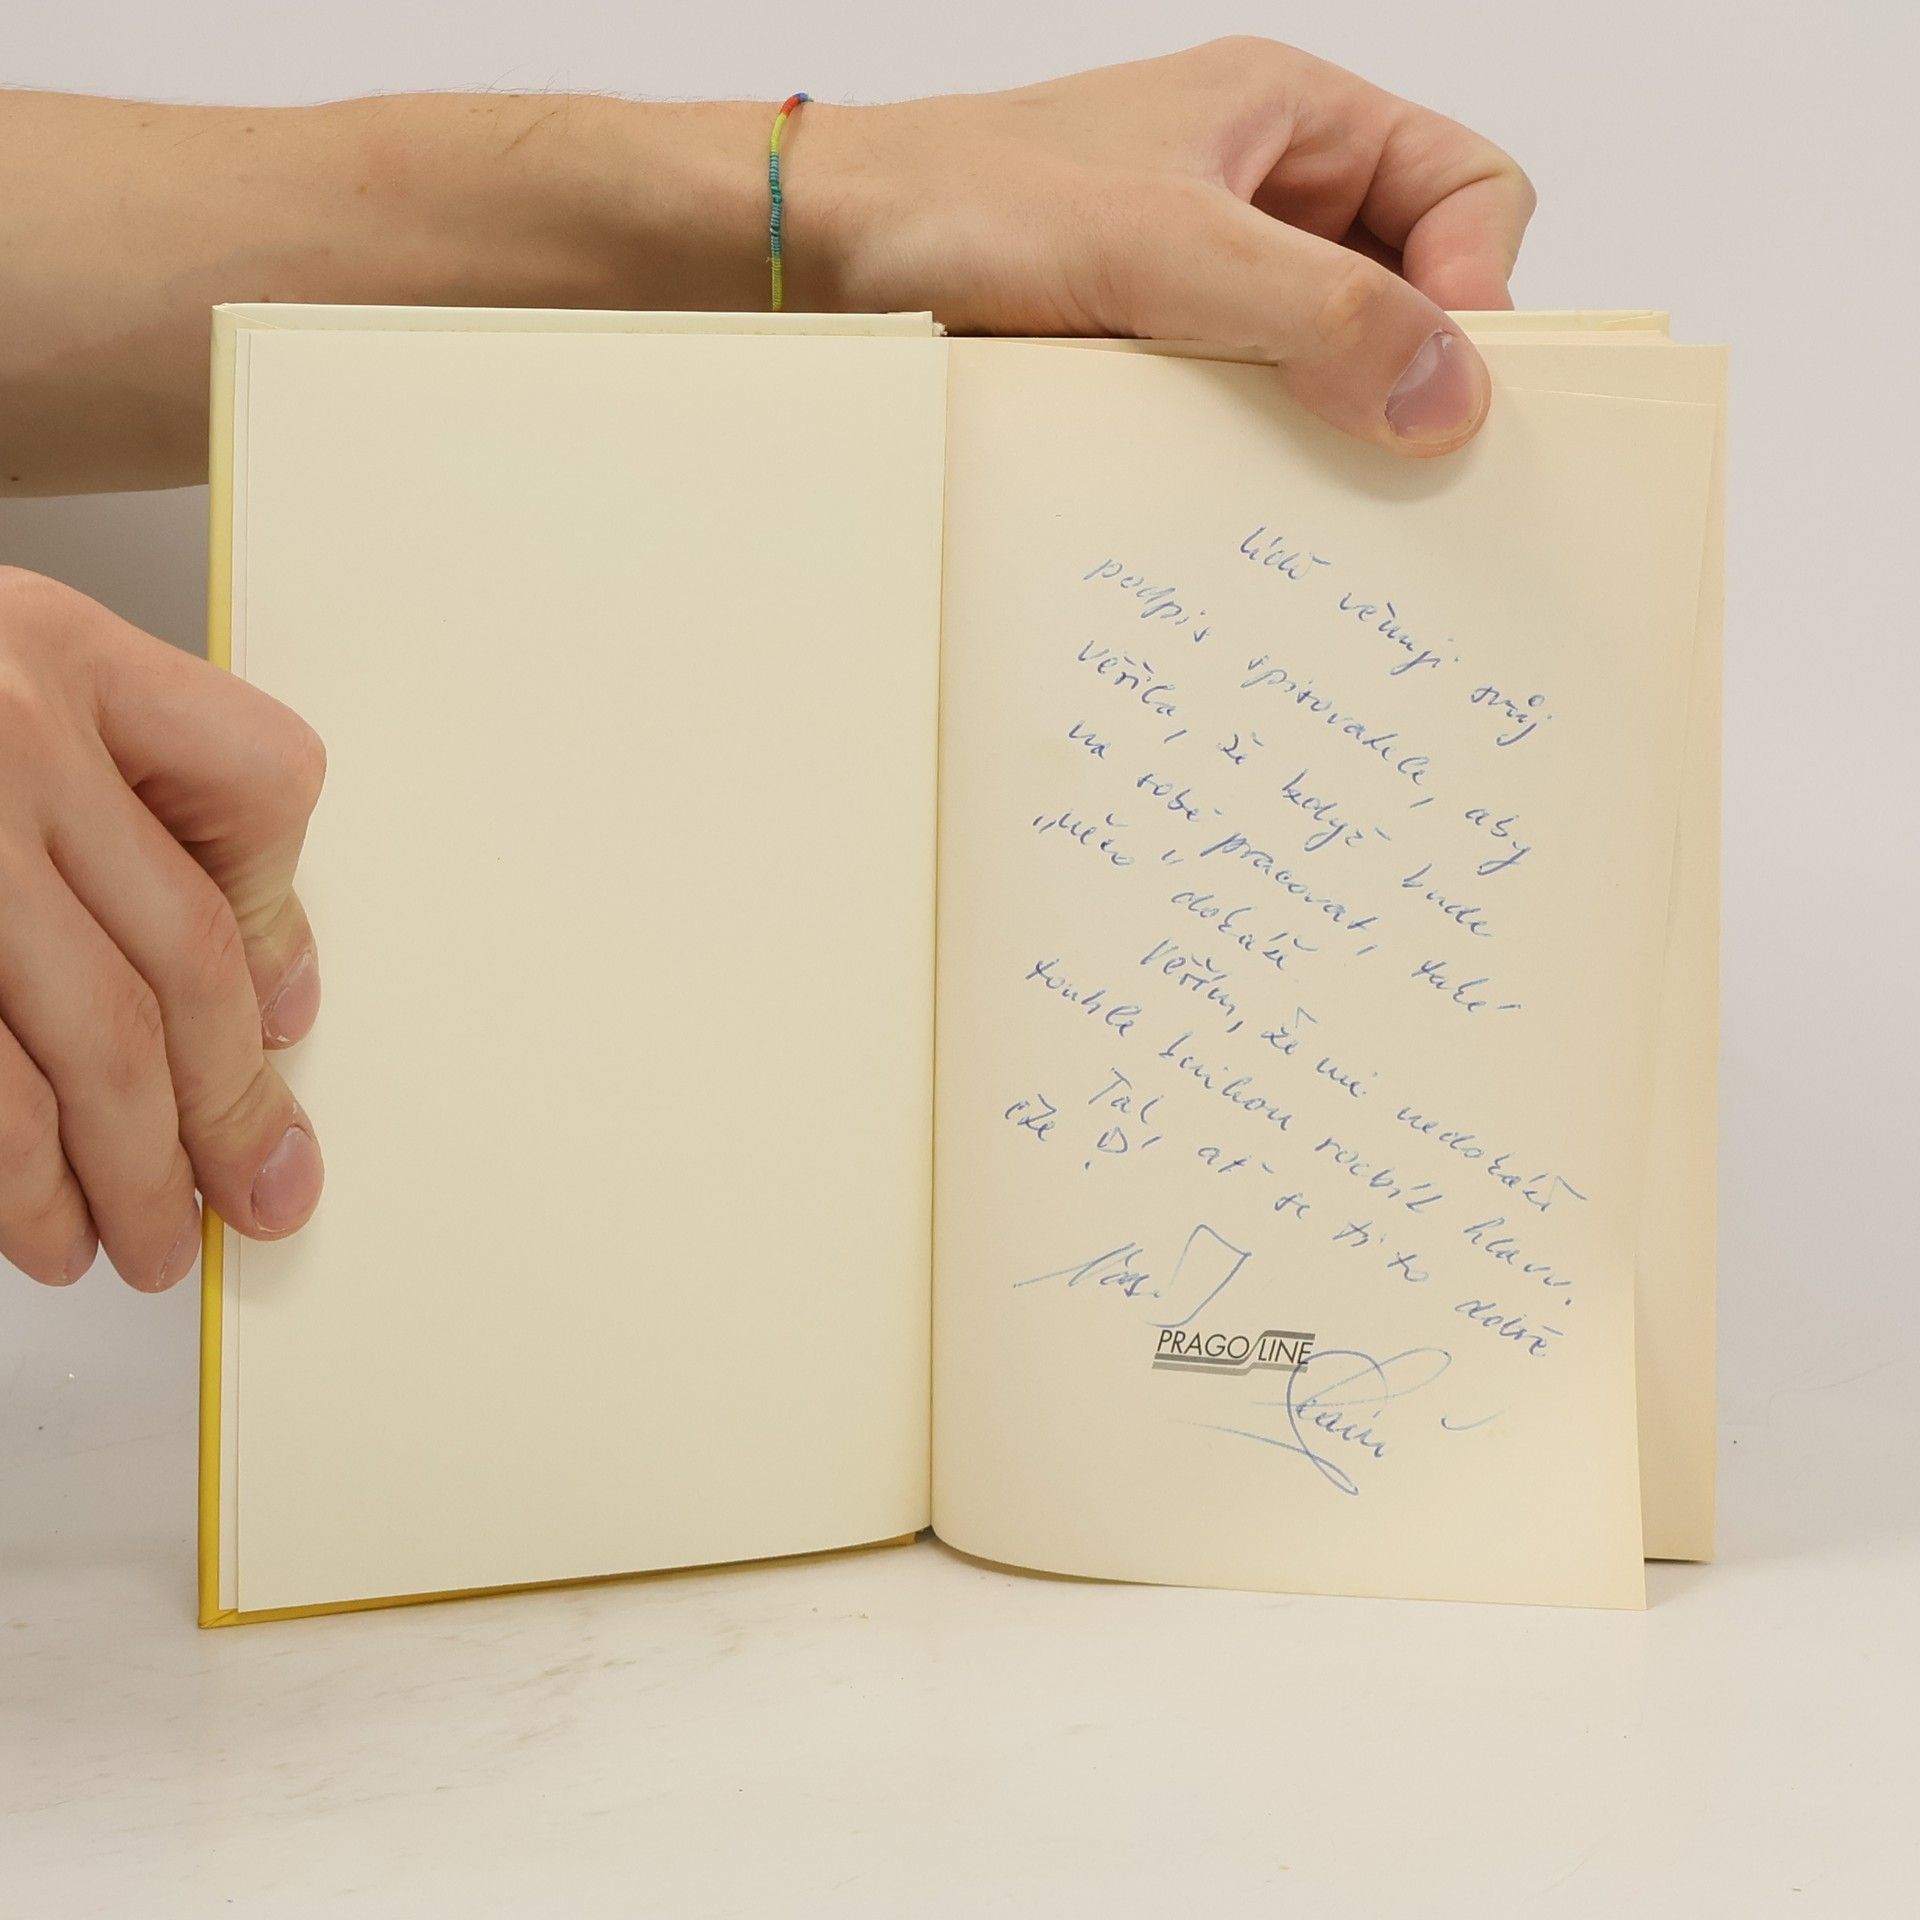 Lídě věnuji svůj
podpis spisovatele, aby
věřila, že když bude
na sobě pracovat, také
„něco" dokáže.
Věřím, že mi nedokáže
touhle knihou rozbít hlavu.
Tak, ať se ti to dobře
čte!
PRAGO LINE